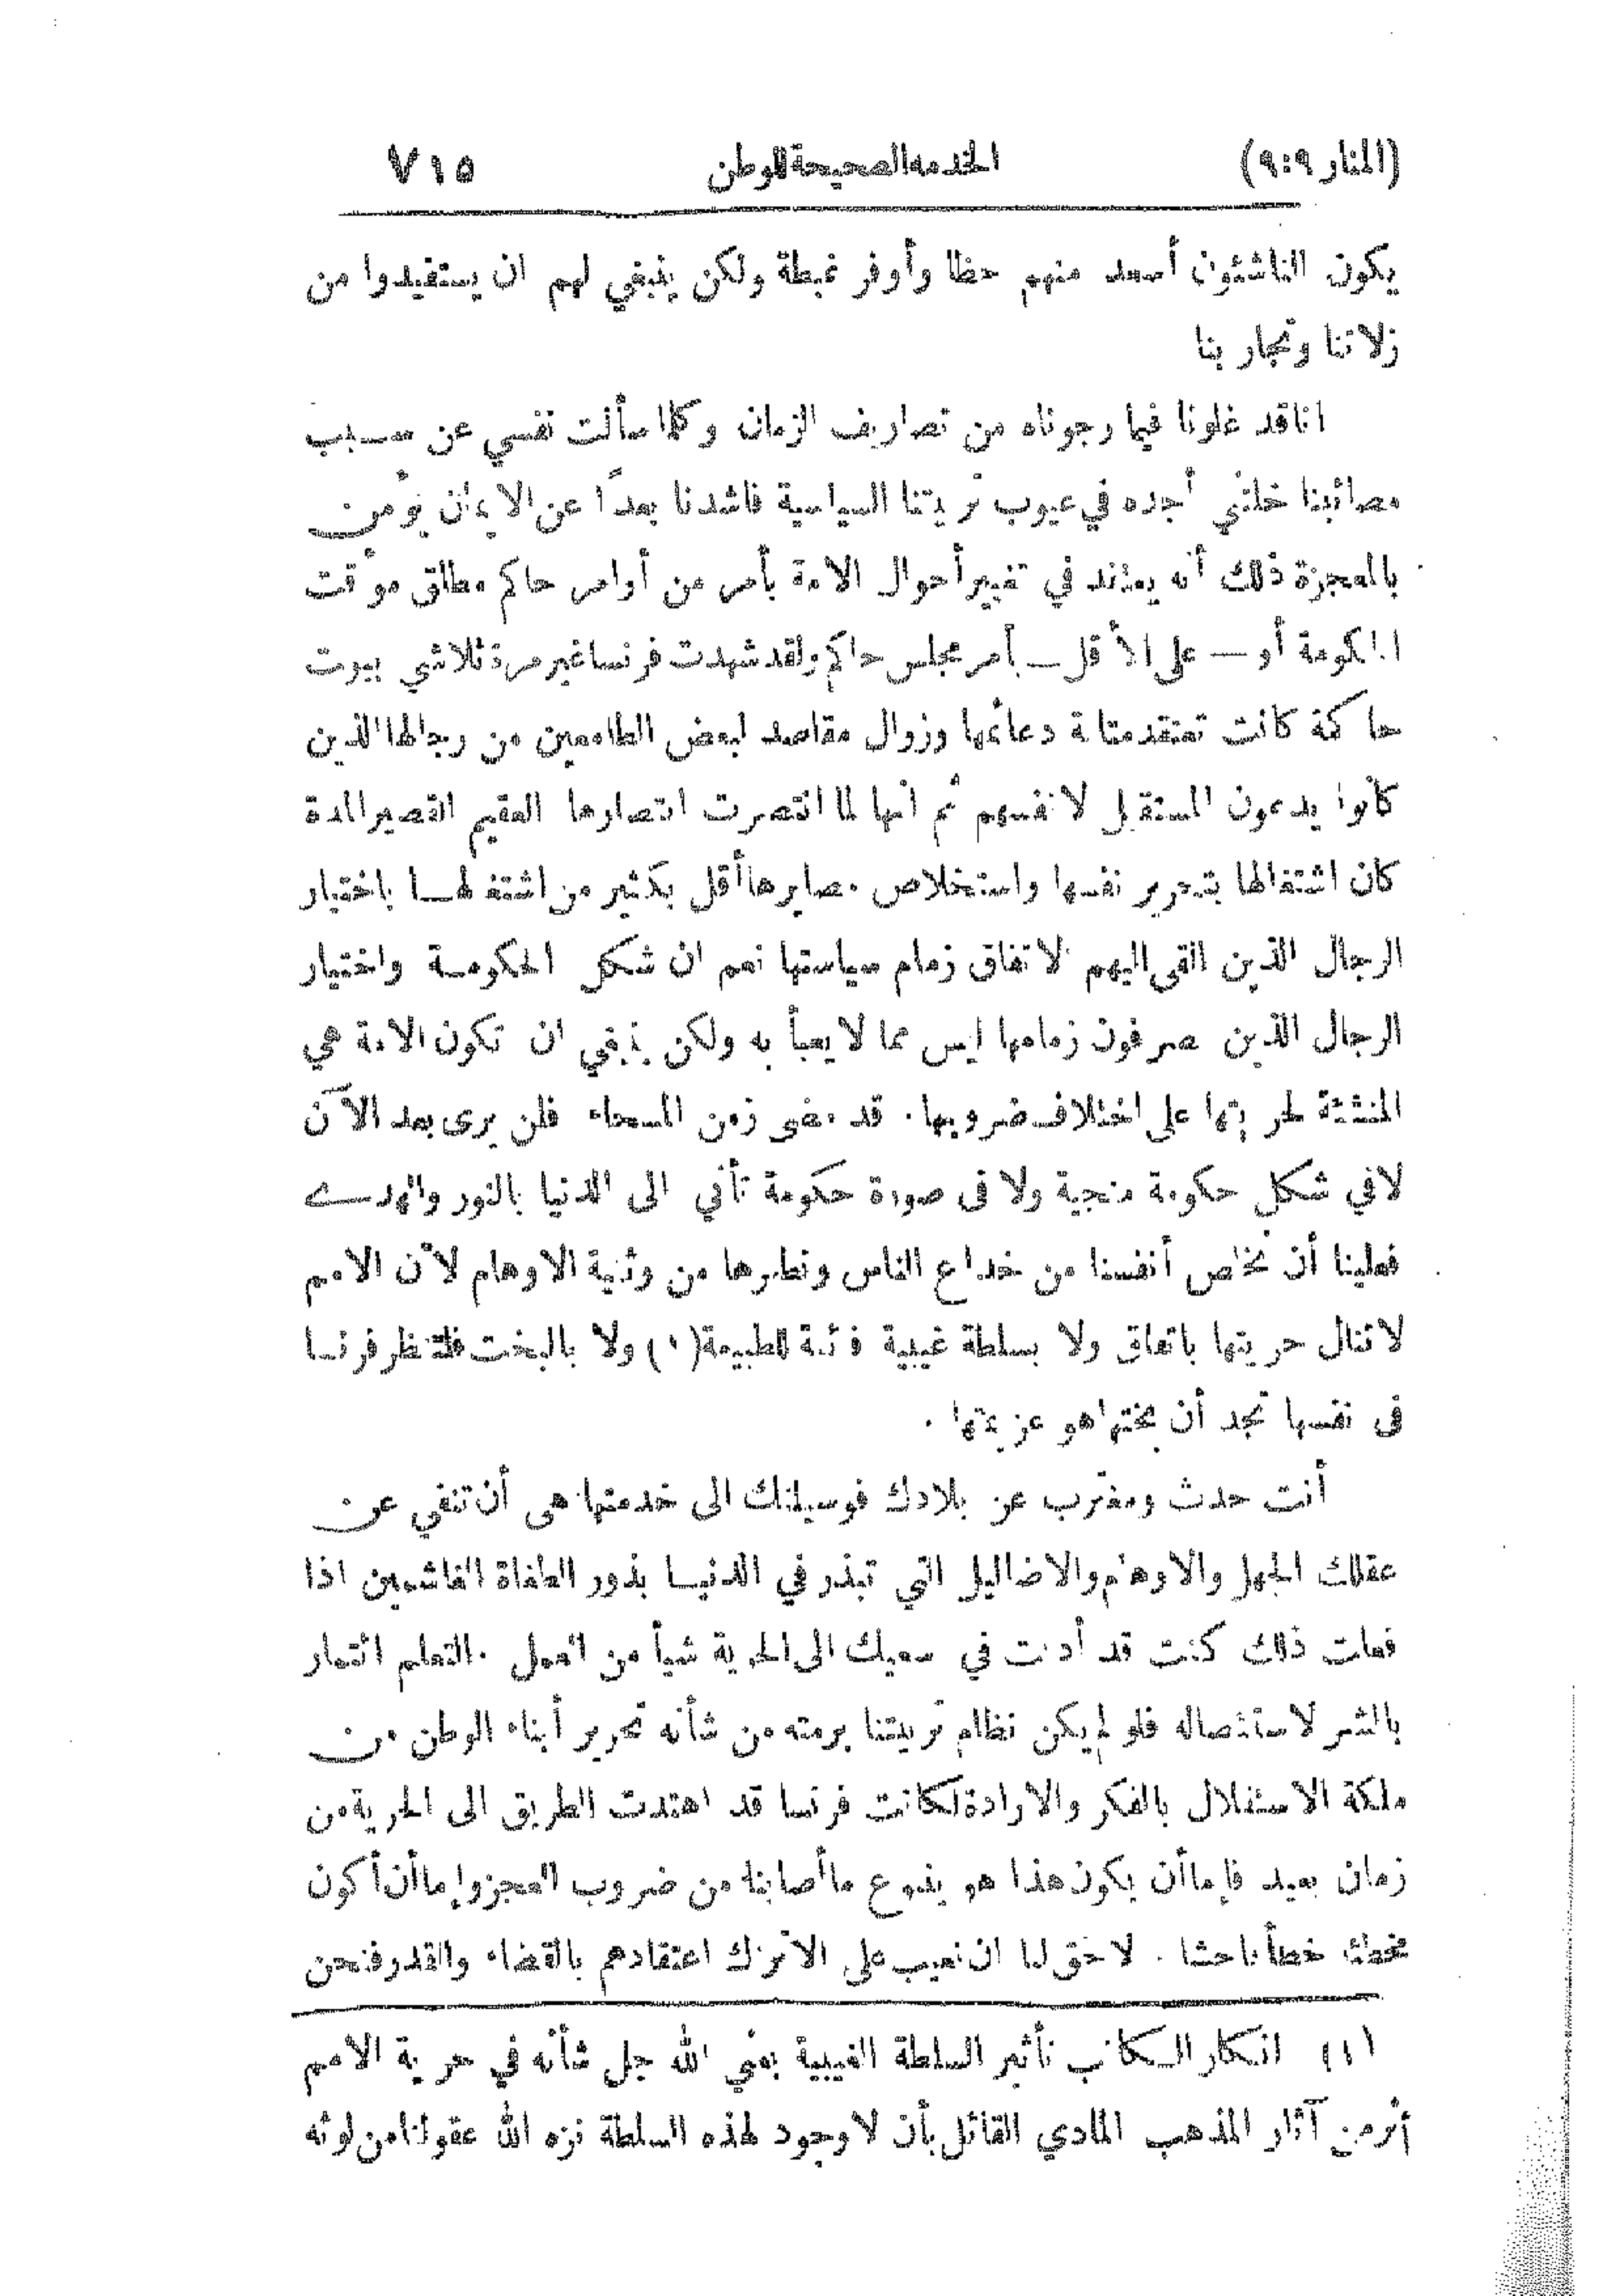 (المنار ٩:٩) الخدمة الصحيحة للوطن ٧١٥
يكون الناشئون أسعد منهم حظا وأوفر غبطة ولكن ينبغي لهم ان يستفيدوا من
زلاتنا وتجاربنا
اننا قد غلونا فيما رجوناه من تصاريف الزمان وكلما سألت نفسي عن سبب
مصائبنا خلتني أجده في عيوب تربيتنا السياسية فأشدنا بعداً عن الايمان يؤمن
بالمعجزة ذلك أنه يعتقد في تغيير أحوال الامة بأمر من أوامر حاكم مطلق موقت
الحكومة أو — على الأقل — بأمر مجلس حاكم ولقد شهدت فرنسا غير مرة تلاشي بيوت
حاكمة كانت تعتقد متانة دعائمها وزوال مقاصد لبعض الطامعين من رجالها الذين
كانوا يدعون المستقبل لانفسهم ثم انها لما انتصرت انتصارها العقيم القصير المدة
كان اشتغالها بتحرير نفسها واستخلاص مصايرها أقل بكثير من اشتغالها باختيار
الرجال الذين القى اليهم الاتفاق زمام سياستها نعم ان شكل الحكومة واختيار
الرجال الذين يصرفون زمامها ليس مما لا يعبأ به ولكن ينبغي ان تكون الامة هي
المنشئة لحريتها على اختلاف ضروبها. قد مضى زمن المسحاء فلن يرى بعد الآن
لا في شكل حكومة منجية ولا فى صورة حكومة تأتي الى الدنيا بالنور والهدى
فعلينا أن نخلص أنفسنا من خداع الناس ونطهرها من وثنية الاوهام لأن الامم
لا تنال حريتها باتفاق ولا بسلطة غيبية فائقة للطبيعة(١) ولا بالبخت فلتنظر فرنسا
فى نفسها تجد أن بختها هو عزيمتها .
أنت حدث ومغترب عن بلادك فوسيلتك الى خدمتها هى أن تنفي عن
عقلك الجهل والاوهام والاضاليل التي تبذر في الدنيا بذور الطغاة الغاشمين اذا
فعلت ذلك كنت قد أدنت في سعيك الى الحرية شيأ من العمل . التعلم ائتمار
بالشر لاستئصاله فلو لم يكن نظام تربيتنا برمته من شأنه تحرير أبناء الوطن من
ملكة الاستقلال بالفكر والارادة لكانت فرنسا قد اهتدت الطريق الى الحرية من
زمان بعيد فإما أن يكون هذا هو ينبوع ما أصابنا من ضروب العجز وإما أن أكون
مخطئا خطأ فاحشا . لا حق لنا ان نعيب على الاتراك اعتقادهم بالقضاء والقدر فنحن
(١) انكار الكاتب تأثير السلطة الغيبية يعني الله جل شأنه في حرية الامم
أثر من آثار المذهب المادي القائل بأن لا وجود لهذه السلطة نزه الله عقولنا من لوثه